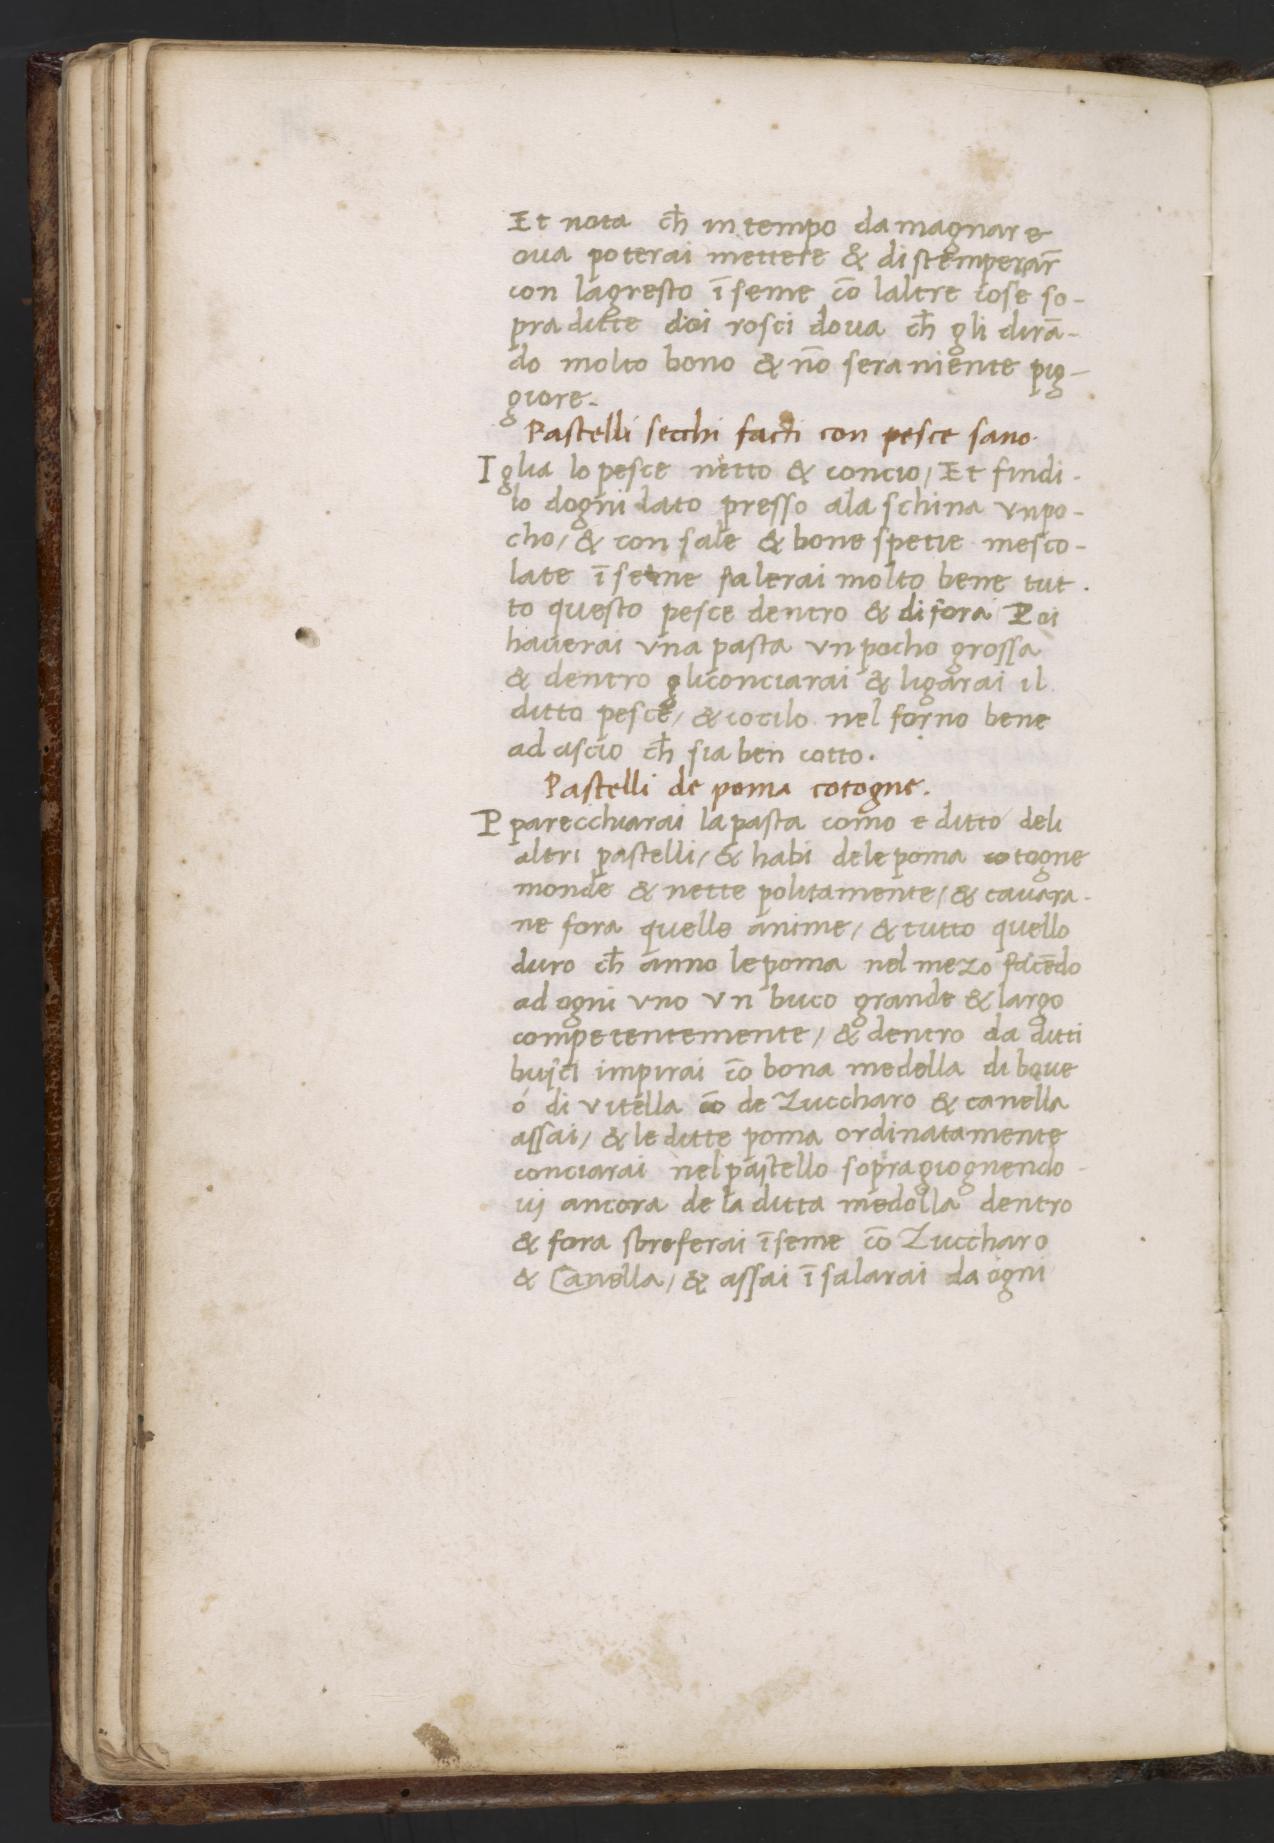 Et nota ch̄ in tempo da magnare
oua poterai mettere & distemperar̄
con lagresto ī seme cō laltre cose so-
pra ditte doi rosci doua ch̄ gli dirā-
do molto bono & nō sera niente pig-
giore.
Pastelli secchi facti con pesce sano.
Iglia lo pesce netto & concio / Et findi-
lo dogni dato presso ala schina vnpo-
cho / & con sale & bone spetie mesco-
late ī seme salerai molto bene tut.
to questo pesce dentro & di fora Poi
hauerai vna pasta vn pocho grossa
& dentro gliconciarai & ligarai il
ditto pesce / & cocilo nel forno bene
ad ascio ch̄ sia ben cotto.
Pastelli de poma cotogne.
Pparecchiarai la pasta como e ditto deli
altri pastelli / & habi dele poma cotogne
monde & nette politamente / & cauara-
ne fora quelle anime / & tutto quello
duro ch̄ anno le poma nel mezo facēdo
ad ogni vno vn buco grande & largo
competentemente / & dentro da ditti
impirai cō bona medolla di boue
ó di vitella cō de Zuccharo & canella
assai / & le ditte poma ordinatamente
conciarai nel pastello sopragiognendo-
ui ancora de la ditta medolla dentro
& fora ī seme cō Zuccharo
& Canella / & assai ī salarai da ogni